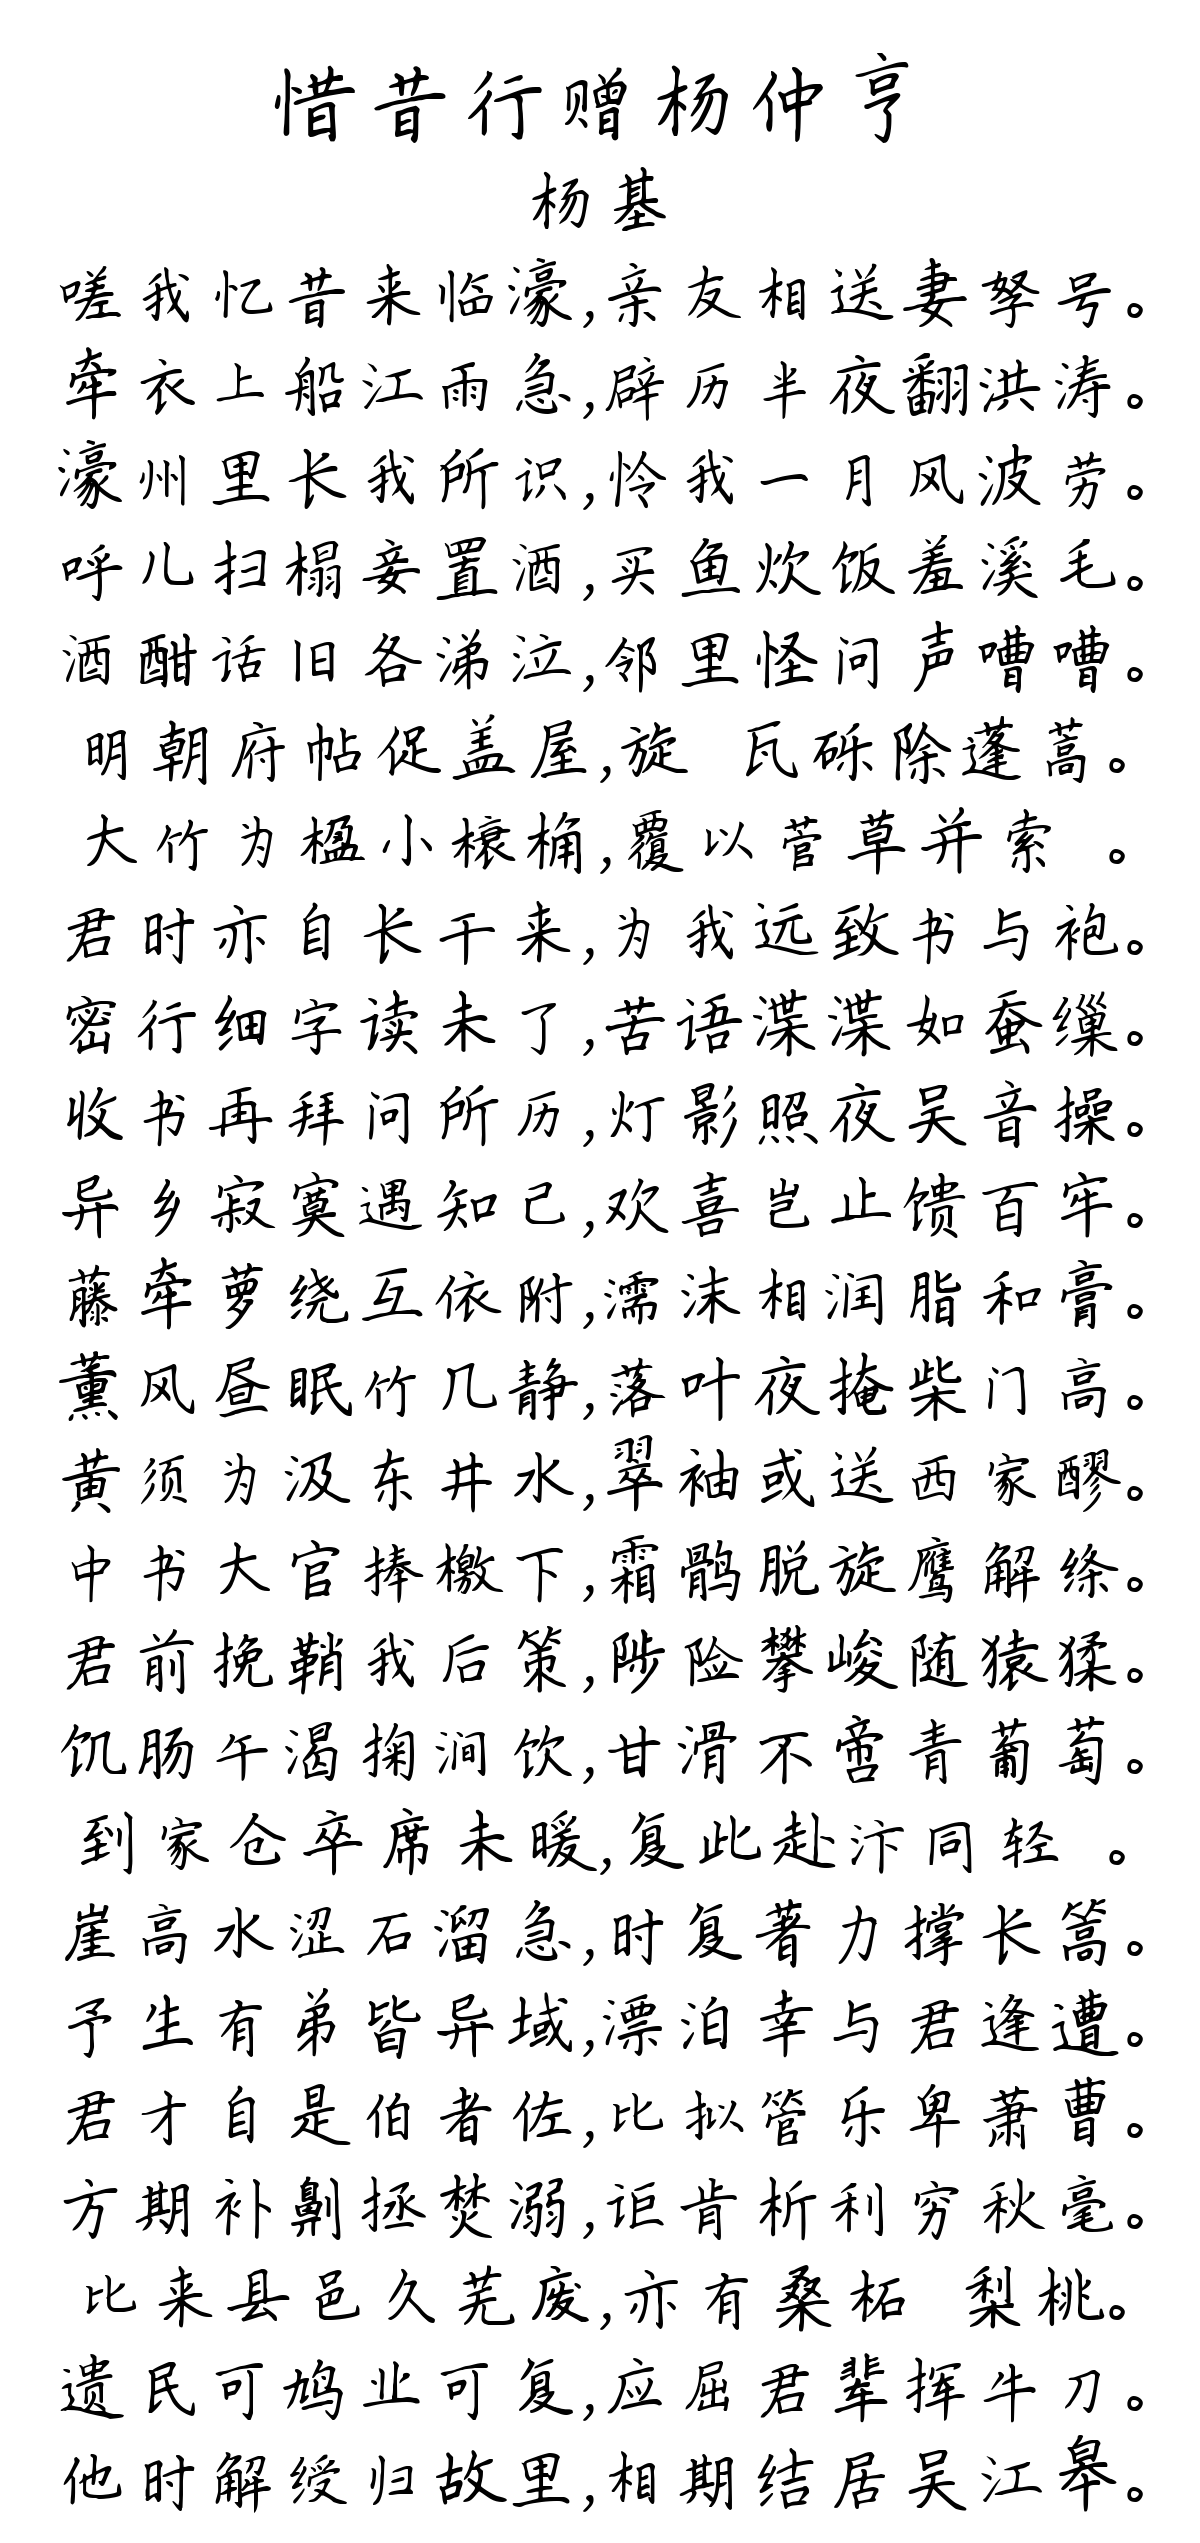 惜昔行赠杨仲亨
杨基
嗟我忆昔来临濠,亲友相送妻孥号。
牵衣上船江雨急,辟历半夜翻洪涛。
濠州里长我所识,怜我一月风波劳。
呼儿扫榻妾置酒,买鱼炊饭羞溪毛。
酒酣话旧各涕泣,邻里怪问声嘈嘈。
明朝府帖促盖屋,旋 瓦砾除蓬蒿。
大竹为楹小榱桷,覆以菅草并索 。
君时亦自长干来,为我远致书与袍。
密行细字读未了,苦语渫渫如蚕缫。
收书再拜问所历,灯影照夜吴音操。
异乡寂寞遇知己,欢喜岂止馈百牢。
藤牵萝绕互依附,濡沫相润脂和膏。
薰风昼眠竹几静,落叶夜掩柴门高。
黄须为汲东井水,翠袖或送西家醪。
中书大官捧檄下,霜鹘脱旋鹰解绦。
君前挽鞘我后策,陟险攀峻随猿猱。
饥肠午渴掬涧饮,甘滑不啻青葡萄。
到家仓卒席未暖,复此赴汴同轻 。
崖高水涩石溜急,时复著力撑长篙。
予生有弟皆异域,漂泊幸与君逢遭。
君才自是伯者佐,比拟管乐卑萧曹。
方期补劓拯焚溺,讵肯析利穷秋毫。
比来县邑久芜废,亦有桑柘 梨桃。
遗民可鸠业可复,应屈君辈挥牛刀。
他时解绶归故里,相期结居吴江皋。